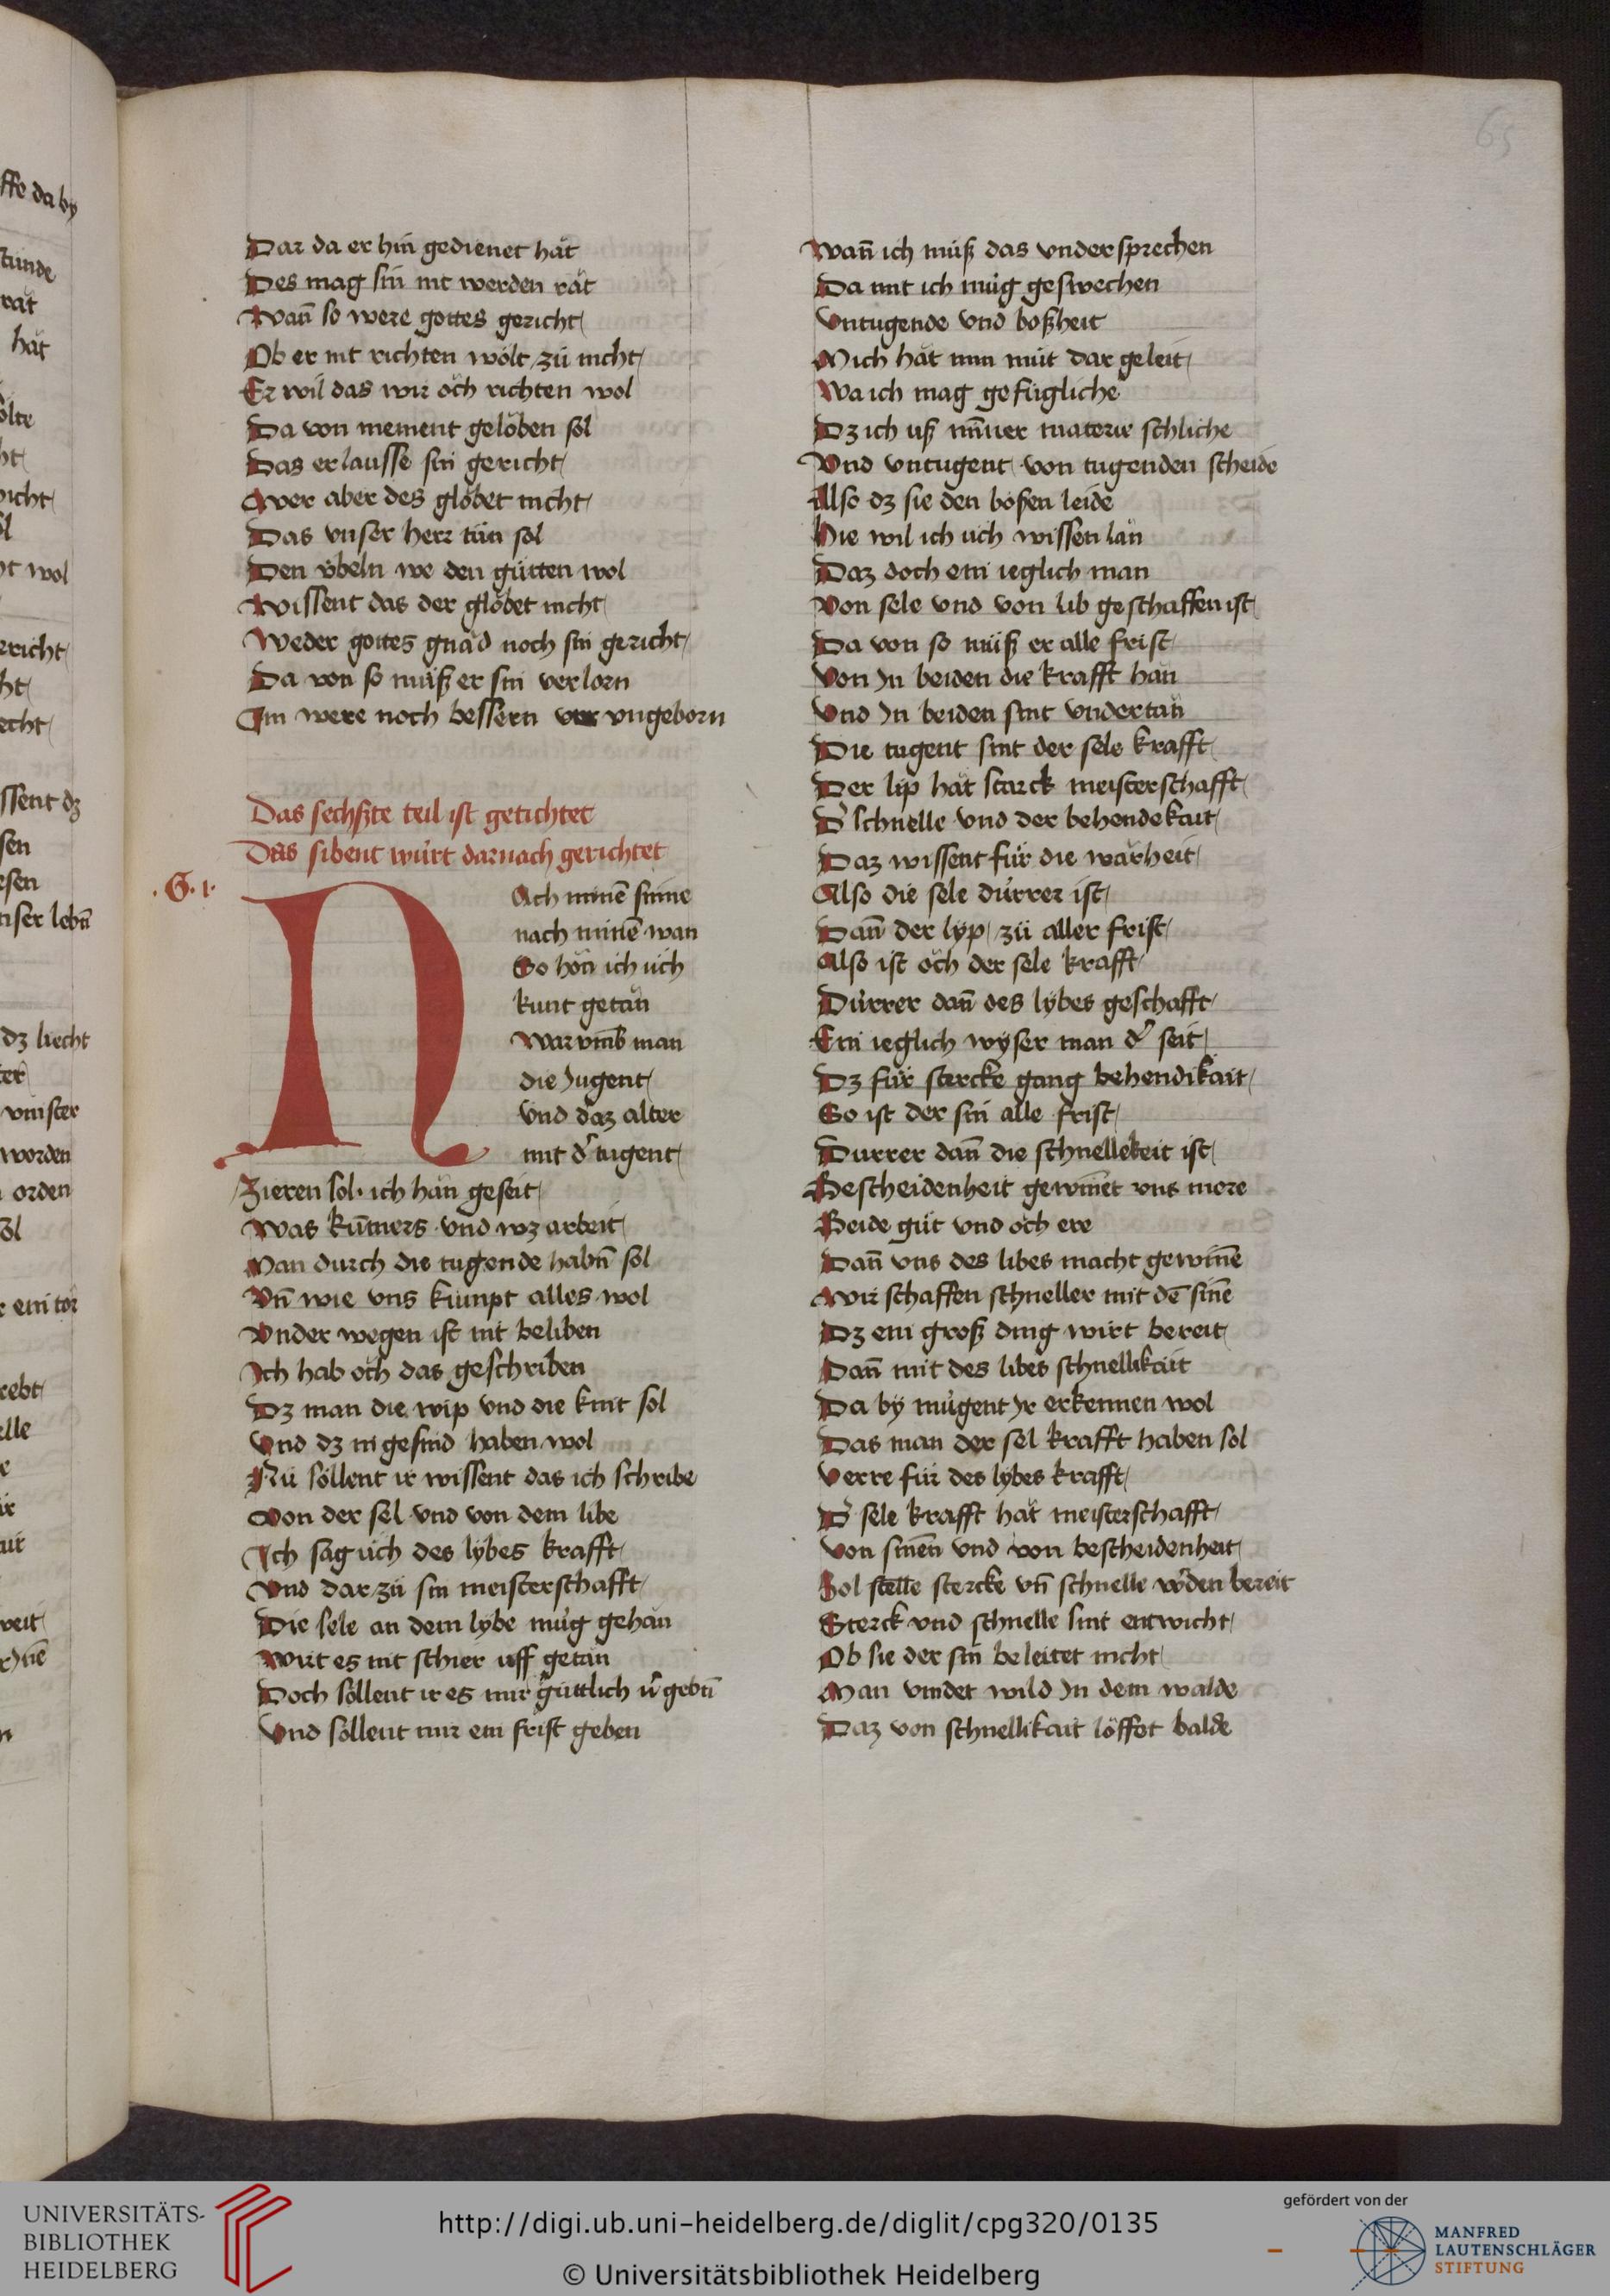 65
Dar da er hin gedienet hät
Des mag sin nit werden rät
Wan̄ so were gottes gericht
Ob er nit richten wölt zü nicht
Er wil das wir öch richten wol
Da von niement gelöben sol
Das er lausse sin gericht
Wer aber des glöbet nicht
Das vnser herr tün sol
Den v̈beln we den gütten wol
Wissent das der glöbet nicht
Weder gottes gnäd noch sin gericht
Da von so müß er sin verlorn
Im were noch bessern vngeborn
Das sechßte teil ist getichtet
Das sibent würt darnach gerichtet
.G.1.
NAch minē sinne
nach minē wan
So hön ich üch
kunt getän
War vmb man
die Jugent
Vnd daz alter
mit d' tugent
Zieren sol. ich hän geseit
Was kūmers vnd wz arbeit
Man durch die tugende habn̄ sol
Vn̄ wie vns kumpt alles wol
Vnder wegen ist nit beliben
Ich hab öch das geschriben
Dz man die wip vnd die kint sol
Vnd dz ingesind haben wol
Nü söllent ir wissent das ich schribe
Von der sel vnd von dem libe
Ich sag üch des lybes krafft
Vnd dar zü sin meisterschafft
Die sele an dem lybe müg gehän
Wirt es nit schier uff getän
Doch söllent ir es mir güttlich v'gebn̄
Vnd söllent mir ein frist geben
Wan̄ ich müß das vndersprechen
Da mit ich müg geswechen
Vntugende vnd boßheit
Mich hät min müt dar geleit
Wa ich mag gefügliche
Dz ich uß mīner materie schliche
Vnd vntugent von tugenden scheide
Also dz sie den bösen leide
Hie wil ich üch wissen län
Daz doch ein ieglich man
Von sele vnd von lib geschaffen ist
Da von so müß er alle frist
Von In beiden die krafft hän
Vnd In beiden sint vndertän
Die tugent sint der sele krafft
Der lip hät starck meisterschafft
D' schnelle vnd der behendekait
Daz wissent für die wärheit
Also die sele dürrer ist
Dan̄ der lyp zü aller frist
Also ist öch der sele krafft
Dürrer dan̄ des lybes geschafft
Ein ieglich wyser man d' seit
Dz für stercke gang behendikait
So ist der sin alle frist
Durrer dan̄ die schnellekeit ist
Bescheidenheit gewinnet vns more
Beide güt vnd öch ere
Dan̄ vns des libes macht gewinē
Wir schaffen schneller mit dē sinē
Dz ein groß ding wirt bereit
Dan̄ mit des libes schnellikait
Da by mügent Ir erkennen wol
Das man der sel krafft haben sol
Verre für des lybes krafft
D' sele krafft hät meisterschafft
Von sinen vnd von bescheidenheit
Sol stelle stercke vn̄ schnelle w'den bereit
Sterck vnd schnelle sint entwicht
Ob sie der sin beleitet nicht
Man vindet wild In dem walde
Daz von schnellikait löffet balde
UNIVERSITÄTS-
BIBLIOTHEK
HEIDELBERG
http://digi.ub.uni-heidelberg.de/diglit/cpg320/0135
© Universitätsbibliothek Heidelberg
gefördert von der
MANFRED
LAUTENSCHLÄGER
STIFTUNG